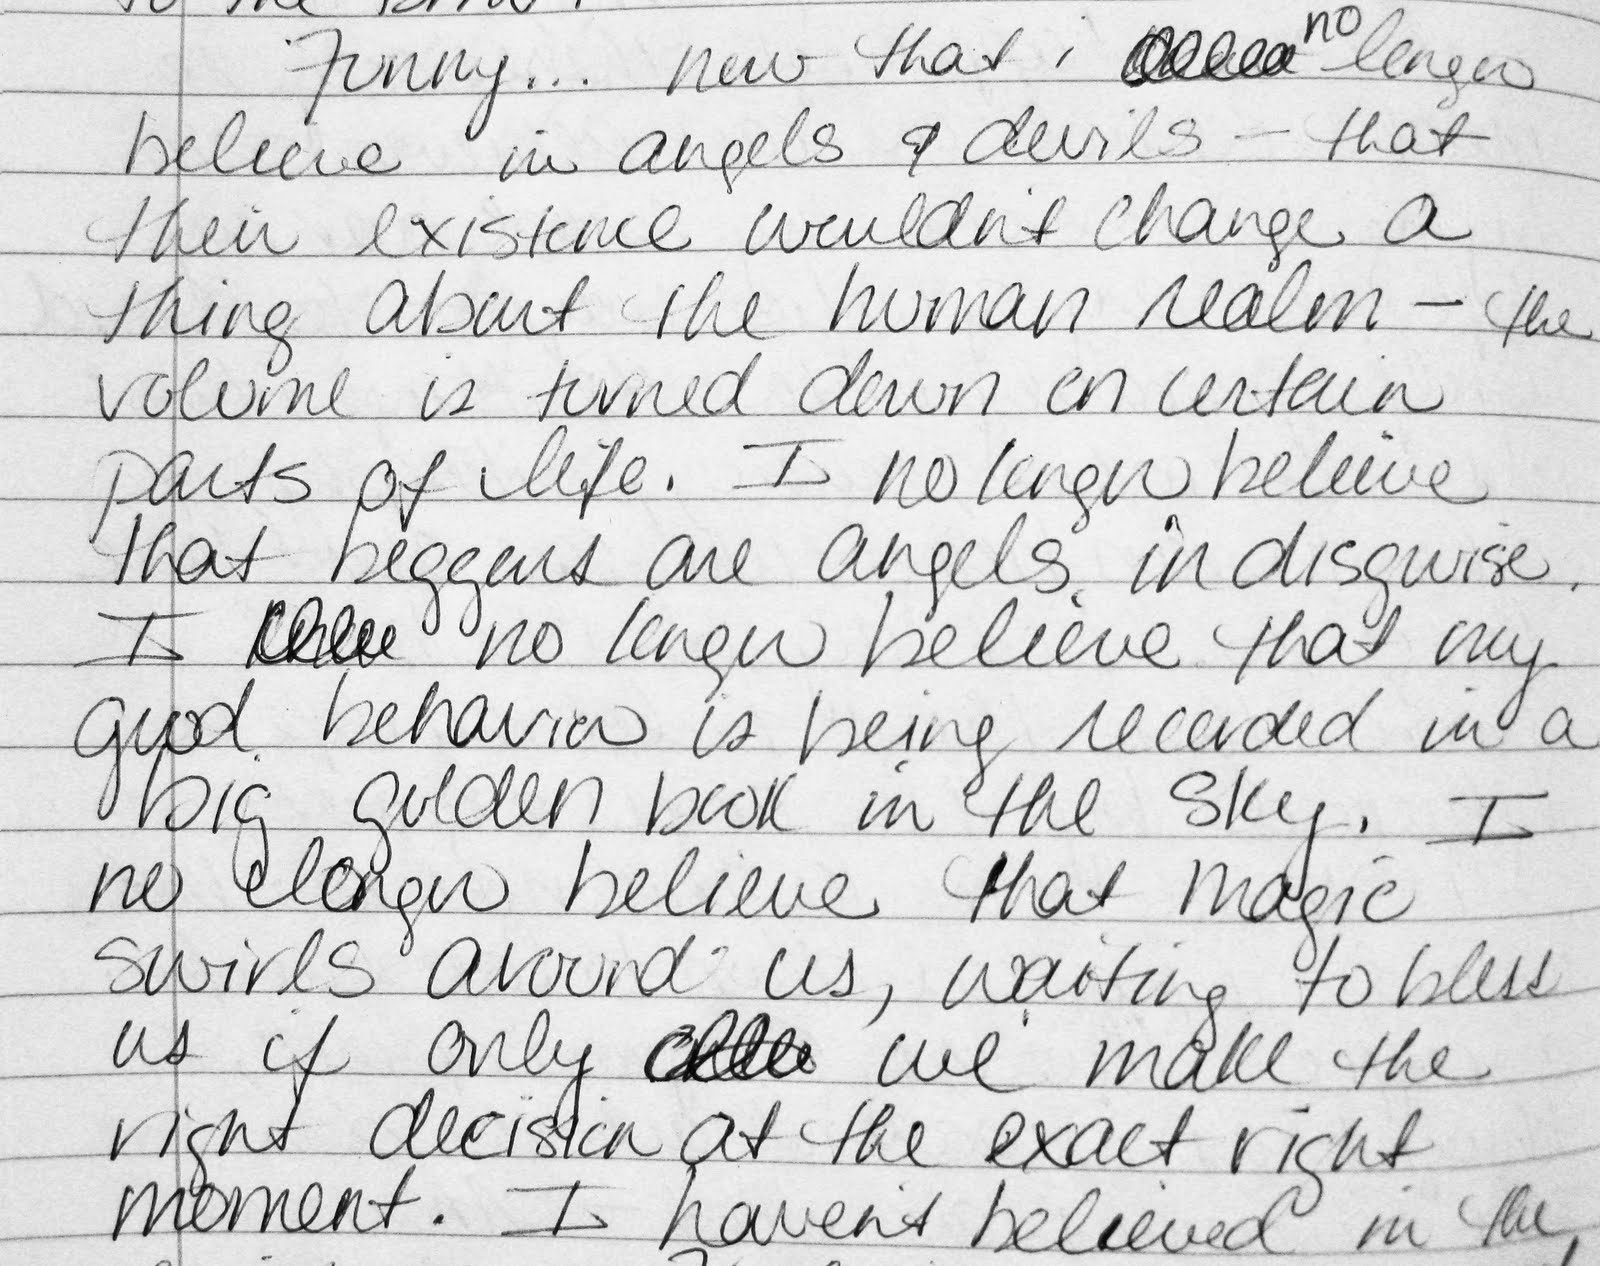 to the
Funny... now that i no longer
believe in angels & devils – that
their existence wouldn't change a
thing about the human realm – the
volume is turned down on certain
parts of life. I no longer believe
that beggars are angels in disguise.
I no longer believe that my
good behavior is being recorded in a
big golden book in the sky. I
no longer believe that magic
swirls around us, waiting to bless
us if only we make the
right decision at the exact right
moment. I haven't believed in the